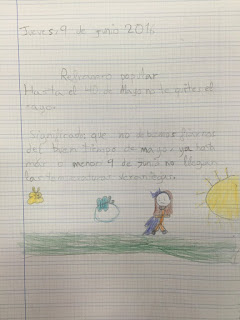 Jueves,9 de junio
Refranero popular
Hasta el 40 de Mayo no te quites el
sayo.
Significado que no debemos fiarnos
del buen tiempo de mayo y ya hasta
más o menos 9 de junio no llegan
las temperaturas veraniegas.